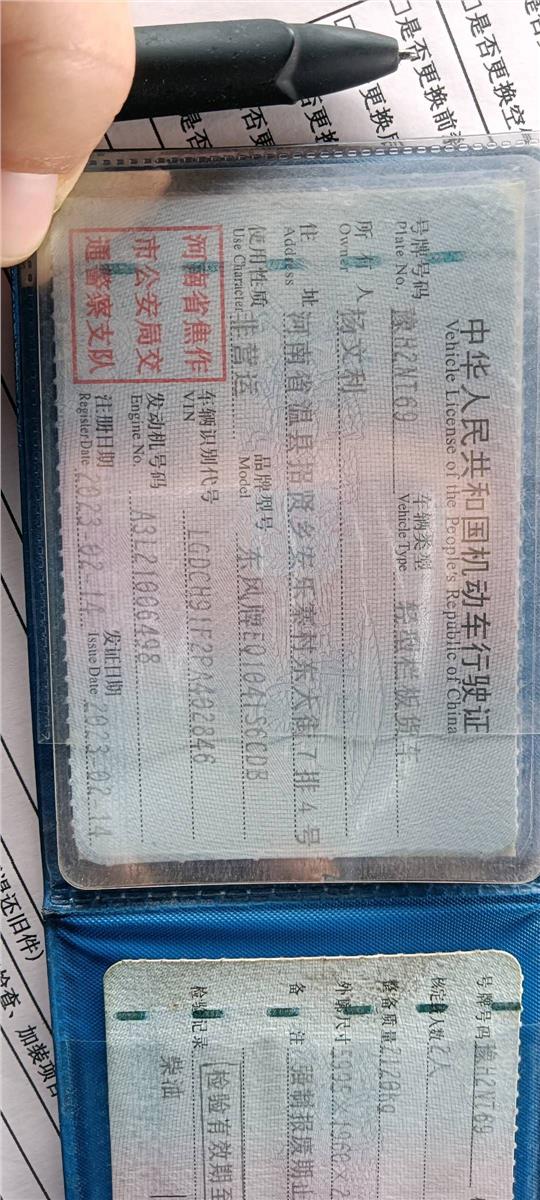 中华人民共和国机动车行驶证
Vehicle License of the People's Republic of China
号牌号码 豫H2NT69 车辆类型 轻型栏板货车
Plate No. Vehicle Type
所有人 杨文利
Owner
住址 河南省温县招贤乡安乐寨村东大街7排4号
Address
使用性质 非营运 品牌型号 东风牌EQ1041S6CDB
Use Character Model
河南省焦作
市公安局交
通警察支队
车辆识别代号 LGDCH91F2PA402846
VIN
发动机号码 A3L21006498
Engine No.
注册日期 2023-02-14 发证日期 2023-02-14
Register Date Issue Date
号牌号码 豫H2NT69
核定载人数 2人
整备质量
外廓尺寸
备注 强制报废期止
检验记录 检验有效期至
柴油
是否更换空
是否更换前
是否更换
是否更换
退还旧件)
检查、加装项目